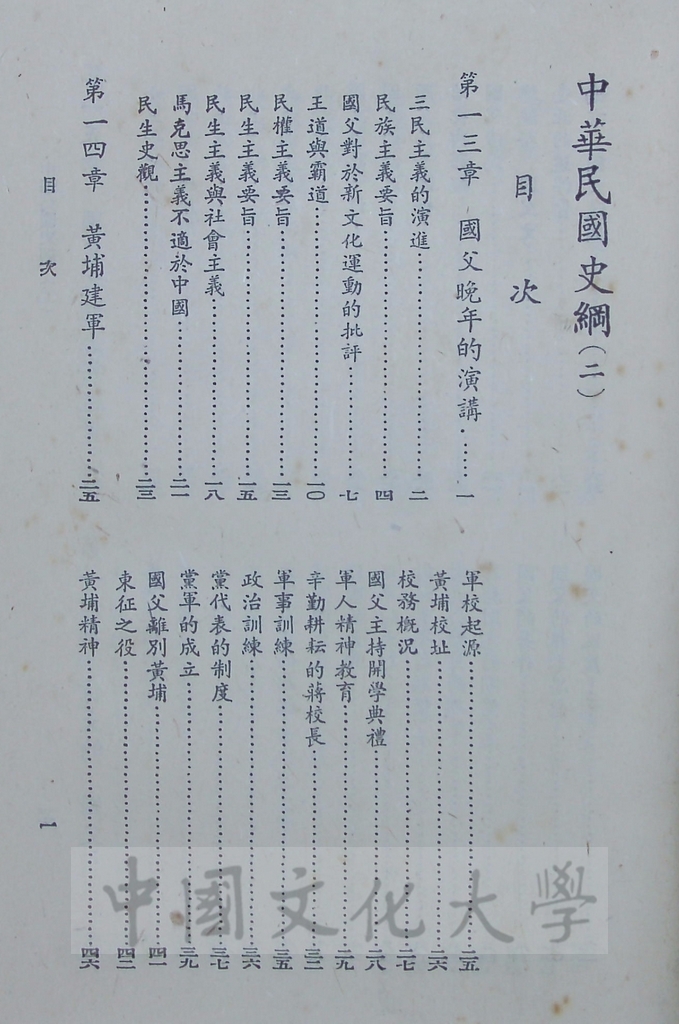 中華民國史綱(二)
目次
第一三章 國父晚年的演講……一
三民主義的演進……二
民族主義要旨……四
國父對於新文化運動的批評……七
王道與霸道……一〇
民權主義要旨……一三
民生主義要旨……一五
民生主義與社會主義……一八
馬克思主義不適於中國……二一
民生史觀……二三
第一四章 黃埔建軍……二五
軍校起源……二五
黃埔校址……二六
校務概況……二七
國父主持開學典禮……二八
軍人精神教育……二九
辛勤耕耘的蔣校長……三二
軍事訓練……三五
政治訓練……三六
黨代表的制度……三七
黨軍的成立……三九
國父離別黃埔……四一
東征之役……四二
黃埔精神……四六
目次 一
中國文化大學